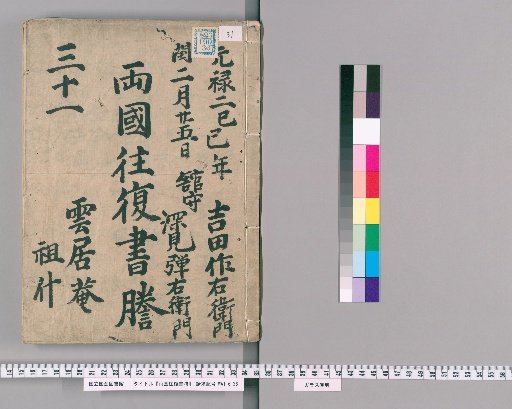 元禄二己巳年 吉田作右衛門
閏二月廿五日 舘守 深見弾右衛門
両國往復書謄
三十一
雲居菴
祖什
31